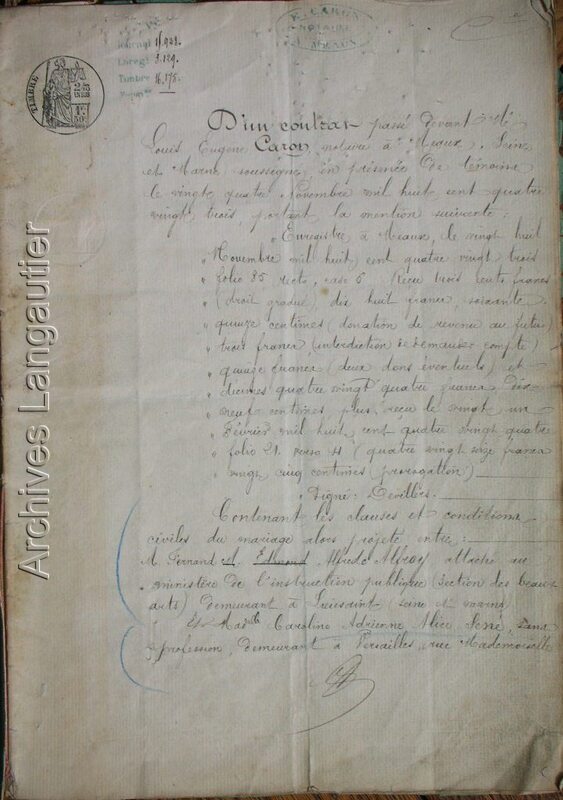 E. CARON
NOTAIRE
MEAUX
Journal 11.938.
Enreg. 3.129.
Timbre 16.175.
TIMBRE
D'un contrat passé devant Me
Louis Eugène Caron notaire à Meaux, Seine
et Marne, soussigné, en présence de témoins
le vingt quatre Novembre mil huit cent quatre
vingt trois, portant la mention suivante :
" Enregistré à Meaux, le vingt huit
" Novembre mil huit cent quatre vingt trois
" folio 85 recto, case 5. Reçu trois cents francs
" (droit gradué) dix huit francs soixante
" quinze centimes (donation de revenu au futur)
" trois francs (interdiction de demander compte)
" quinze francs (deux dons éventuels) et
" décimes quatre vingt quatre francs dix
" neuf centimes plus reçu le vingt un
" Février mil huit cent quatre vingt quatre
" folio 21 verso 4 (quatre vingt seize francs
" vingt cinq centimes (prorogation)
" Signé : Devillers.
Contenant les clauses et conditions
civiles du mariage alors projeté entre :
M. Fernand Alfred Alfroy attaché au
ministère de l'instruction publique (section des beaux
arts), demeurant à
Et Madlle Caroline Adrienne Alice sans
profession, demeurant à Versailles, rue Mademoiselle
Archives Langautier